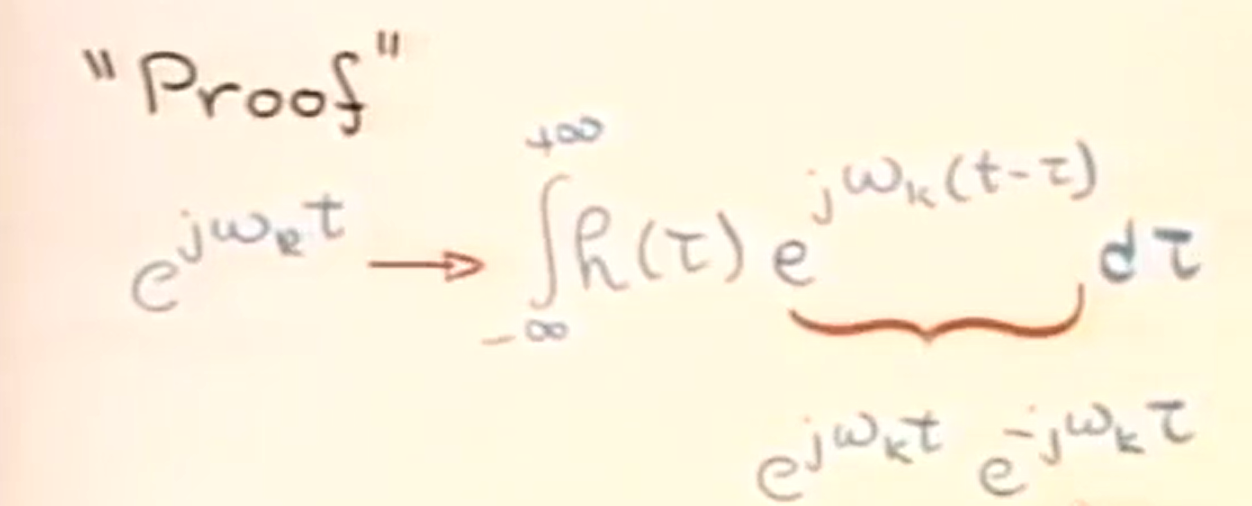 "Proof"
e^{jω_k t} → ∫_{-∞}^{+∞} h(τ) e^{jω_k(t-τ)} dτ
e^{jω_k t} e^{-jω_k τ}